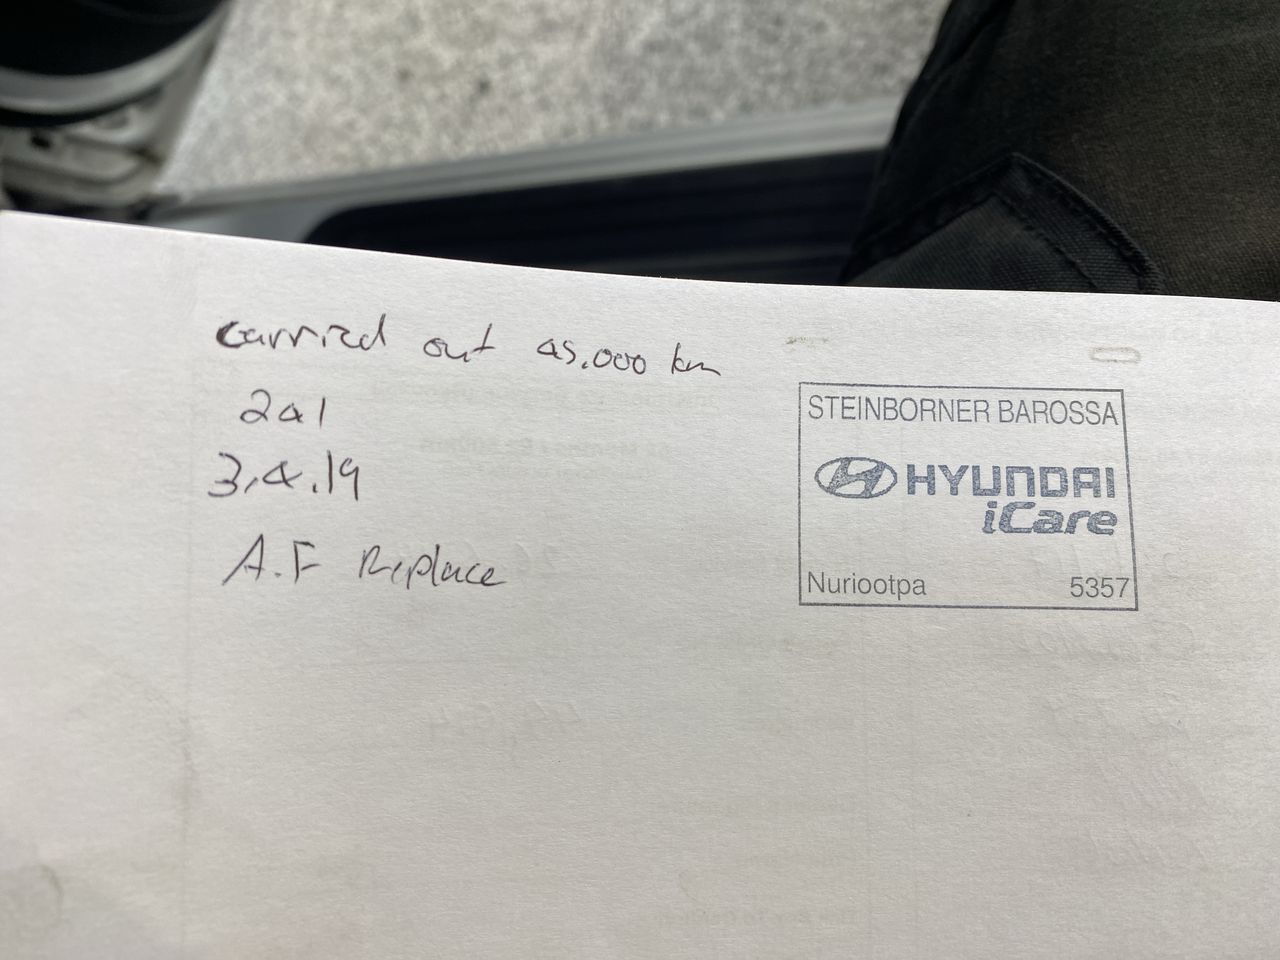 Carried out 45,000 km
241
3.4.19
A.F Replace
STEINBORNER BAROSSA
HYUNDAI
iCare
Nuriootpa 5357